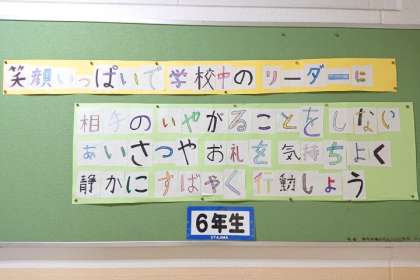 笑顔いっぱいで学校中のリーダーに
相手のいやがることをしない
あいさつやお礼を気持ちよく
静かにすばやく行動しよう
6年生